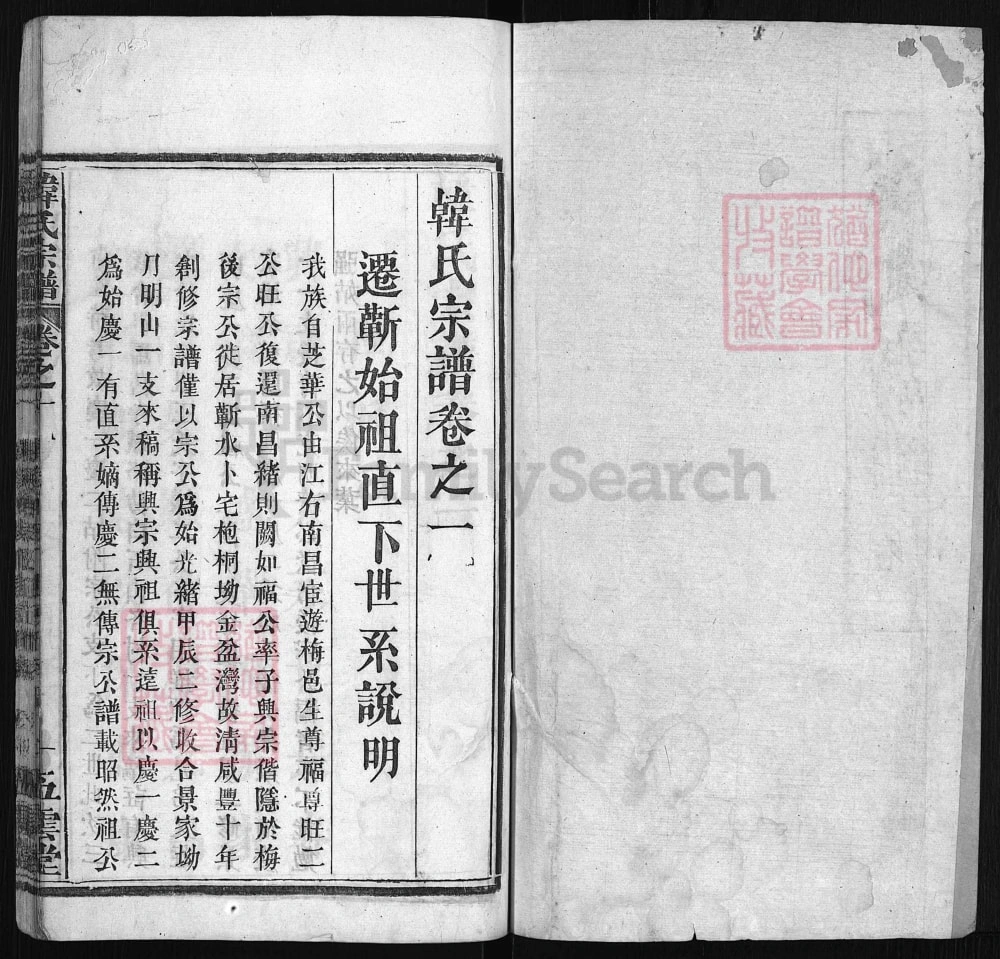 韓氏宗譜卷之一
遷蘄始祖直下世系說明
我族自芝華公由江右南昌宦遊梅邑生尊福尊旺二
公旺公復還南昌緒則闕如福公率子興宗偕隱於梅
後宗公徙居蘄水卜宅枹桐坳金盆灣故清咸豐十年
創修宗譜僅以宗公爲始光緒甲辰二修收合景家坳
刀明山一支來稿稱興宗興祖俱系遠祖以慶一慶二
爲始慶一有直系嫡傳慶二無傳宗公譜載昭然祖公
韓氏宗譜
卷之一
一
五雲堂
譜學會
收藏
FamilySearch